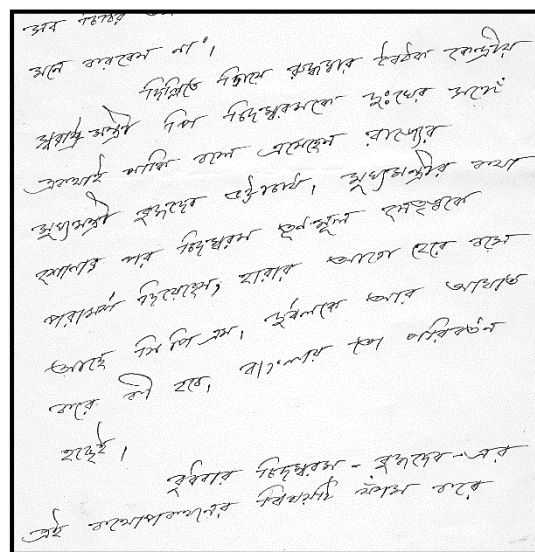 সব
মনে করবেন না',
দিল্লিতে রুদ্ধদ্বার বৈঠকে কেন্দ্রীয়
স্বরাষ্ট্র মন্ত্রী পি চিদম্বরমকে দুঃখের সঙ্গে
একথাই নাকি বলে এসেছেন রাজ্যের
মুখ্যমন্ত্রী বুদ্ধদেব ভট্টাচার্য। মুখ্যমন্ত্রীর কথা
শোনার পর চিদম্বরম তৃণমূল নেতৃত্বকে
পরামর্শ দিয়েছেন, হারার আগে হেরে বসে
আছে সি পি এম। দুর্বলকে আর আঘাত
করে কী হবে, বাংলায় তো পরিবর্তন
হচ্ছেই।
বুধবার চিদম্বরম - বুদ্ধদেব-এর
এই কথোপকথনের বিষয়টি ফাঁস করে